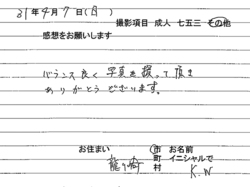 31年4月7日(日)
撮影項目 成人 七五三 その他
感想をお願いします
バランス良く写真を撮って頂き
ありがとうございます。
お住まい 市 お名前
龍ヶ崎 町 イニシャルで
村 K.N